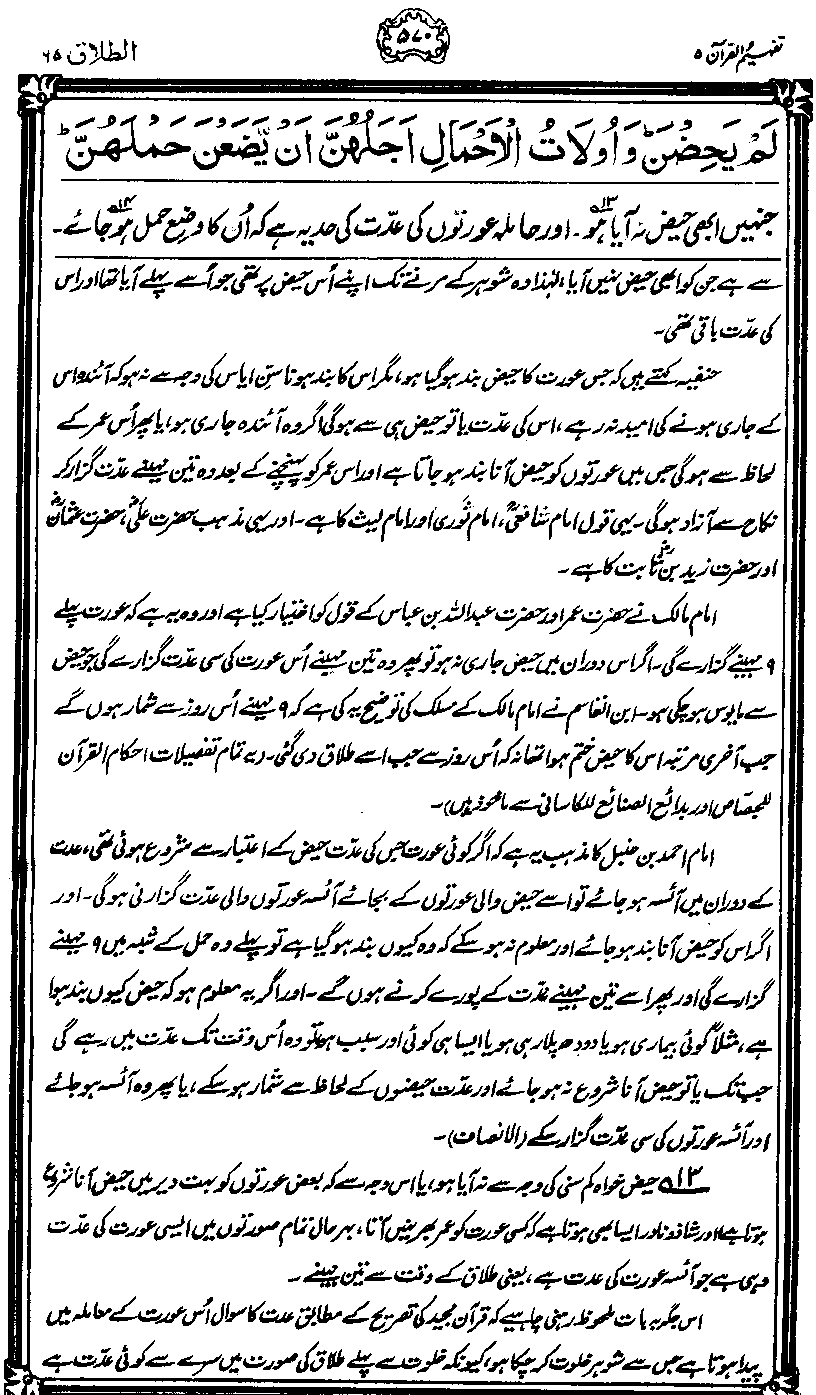 تفہیم القرآن ۵
۵۷۰
الطلاق ۶۵
لَمْ يَحِضْنَ ؕ وَاُولَاتُ الْاَحْمَالِ اَجَلُهُنَّ اَنْ يَّضَعْنَ حَمْلَهُنَّ ؕ
جنہیں ابھی حیض نہ آیا ہو۱۳۔ اور حاملہ عورتوں کی عدّت کی حد یہ ہے کہ اُن کا وضعِ حمل ہو جائے۱۴۔
سے ہے جن کو ابھی حیض نہیں آیا، لہٰذا وہ شوہر کے مرنے تک اپنے اُس حیض پر تھی جو اُسے پہلے آیا تھا اور اس
کی عدّت باقی تھی۔
حنفیہ کہتے ہیں کہ جس عورت کا حیض بند ہو گیا ہو، مگر اس کا بند ہونا سنِ ایاس کی وجہ سے نہ ہو کہ آئندہ اس
کے جاری ہونے کی امید نہ رہے، اس کی عدّت یا تو حیض ہی سے ہوگی اگر وہ آئندہ جاری ہو، یا پھر اُس عمر کے
لحاظ سے ہوگی جس میں عورتوں کو حیض آنا بند ہو جاتا ہے اور اس عمر کو پہنچنے کے بعد وہ تین مہینے عدّت گزار کر
نکاح سے آزاد ہوگی۔ یہی قول امام شافعیؒ، امام ثوری اور امام لیث کا ہے۔ اور یہی مذہب حضرت علیؓ، حضرت عثمانؓ
اور حضرت زیدؓ بن ثابت کا ہے۔
امام مالک نے حضرت عمر اور حضرت عبداللہ بن عباس کے قول کو اختیار کیا ہے اور وہ یہ ہے کہ عورت پہلے
۹ مہینے گزارے گی۔ اگر اس دوران میں حیض جاری نہ ہو تو پھر وہ تین مہینے اُس عورت کی سی عدّت گزارے گی جو حیض
سے مایوس ہو چکی ہو۔ ابن القاسم نے امام مالک کے مسلک کی توضیح یہ کی ہے کہ ۹ مہینے اُس روز سے شمار ہوں گے
جب آخری مرتبہ اس کا حیض ختم ہوا تھا نہ کہ اُس روز سے جب اسے طلاق دی گئی۔ (یہ تمام تفصیلات احکام القرآن
للجصاص اور بدائع الصنائع للکاسانی سے ماخوذ ہیں)۔
امام احمد بن حنبل کا مذہب یہ ہے کہ اگر کوئی عورت جس کی عدّت حیض کے اعتبار سے شروع ہوئی تھی، عدت
کے دوران میں آئسہ ہو جائے تو اسے حیض والی عورتوں کے بجائے آئسہ عورتوں والی عدّت گزارنی ہوگی۔ اور
اگر اس کو حیض آنا بند ہو جائے اور معلوم نہ ہو سکے کہ وہ کیوں بند ہو گیا ہے تو پہلے وہ حمل کے شبہ میں ۹ مہینے
گزارے گی اور پھر اسے تین مہینے عدّت کے پورے کرنے ہوں گے۔ اور اگر یہ معلوم ہو کہ حیض کیوں بند ہوا
ہے، مثلاً کوئی بیماری ہو یا دودھ پلا رہی ہو یا ایسا ہی کوئی اور سبب ہو تو وہ اُس وقت تک عدّت میں رہے گی
جب تک یا تو حیض آنا شروع نہ ہو جائے اور عدّت حیضوں کے لحاظ سے شمار ہو سکے، یا پھر وہ آئسہ ہو جائے
اور آئسہ عورتوں کی سی عدّت گزار سکے (الانصاف)۔
۱۳ حیض خواہ کم سنی کی وجہ سے نہ آیا ہو، یا اس وجہ سے کہ بعض عورتوں کو بہت دیر میں حیض آنا شروع
ہوتا ہے، اور شاذ و نادر ایسا بھی ہوتا ہے کہ کسی عورت کو عمر بھر نہیں آتا، بہرحال تمام صورتوں میں ایسی عورت کی عدّت
وہی ہے جو آئسہ عورت کی عدت ہے، یعنی طلاق کے وقت سے تین مہینے۔
اس جگہ یہ بات ملحوظ رہنی چاہیے کہ قرآن مجید کی تصریح کے مطابق عدت کا سوال اُس عورت کے معاملہ میں
پیدا ہوتا ہے جس سے شوہر خلوت کر چکا ہو، کیونکہ خلوت سے پہلے طلاق کی صورت میں سرے سے کوئی عدّت ہے